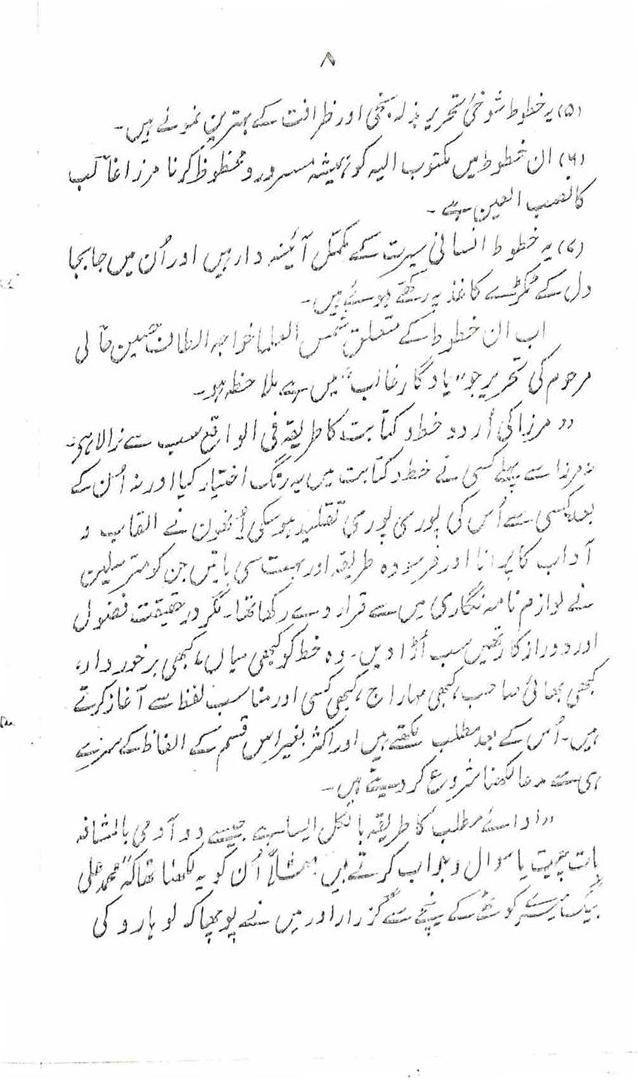 ۸
(۵) یہ خطوط شوخیٔ تحریر بذلہ سنجی اور ظرافت کے بہترین نمونے ہیں۔
(۶) ان خطوط میں مکتوب الیہ کو ہمیشہ مسرور و محظوظ کرنا مرزا غالب
کا نصب العین ہے۔
(۷) یہ خطوط انسانی سیرت کے مکمل آئینہ دار ہیں اور اُن میں جا بجا
دل کے ٹکڑے کاغذ پہ رکھے ہوئے ہیں۔
اب ان خطوط کے متعلق شمس العلما خواجہ الطاف حسین حالی
مرحوم کی تحریر جو "یادگار غالب" میں ہے ملاحظہ ہو۔
"مرزا کی اُردو خط و کتابت کا طریقہ فی الواقع سب سے نرالا ہی۔
نہ مرزا سے پہلے کسی نے خط و کتابت میں یہ رنگ اختیار کیا اور نہ اُن کے
بعد کسی سے اُس کی پوری پوری تقلید ہوسکی اُنھوں نے القاب و
آداب کا پرانا اور فرسودہ طریقہ اور بہت سی باتیں جن کو مترسلین
نے لوازم نامہ نگاری میں سے قرار دے رکھا تھا۔ مگر در حقیقت فضول
اور دور از کار تھیں سب اُڑا دیں۔ وہ خط کو کبھی میاں، کبھی برخوردار،
کبھی بھائی صاحب، کبھی مہاراج، کبھی کسی اور مناسب لفظ سے آغاز کرتے
ہیں۔ اُس کے بعد مطلب لکھتے ہیں اور اکثر بغیر اس قسم کے الفاظ کے سرے
ہی سے مدعا لکھنا شروع کر دیتے ہیں۔
"ادائے مطلب کا طریقہ بالکل ایسا ہے جیسے دو آدمی بالمشافہ
بات چیت یا سوال و جواب کرتے ہیں مثلاً اُن کو یہ لکھنا تھا کہ "محمد علی
بیگ میرے کوٹھے کے نیچے سے گزرا اور میں نے پوچھا کہ لوہارو کی